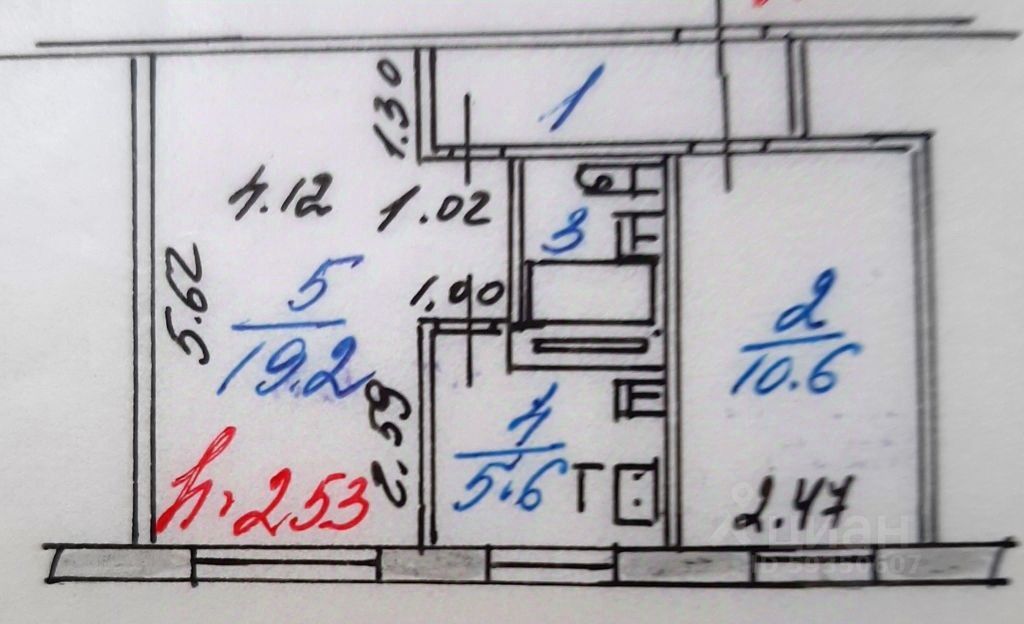 1
1.30
4.12
1.02
3
5.62
5
19.2
1.00
2
10.6
2.59
4
5.6
Г
h=253
2.47
циан